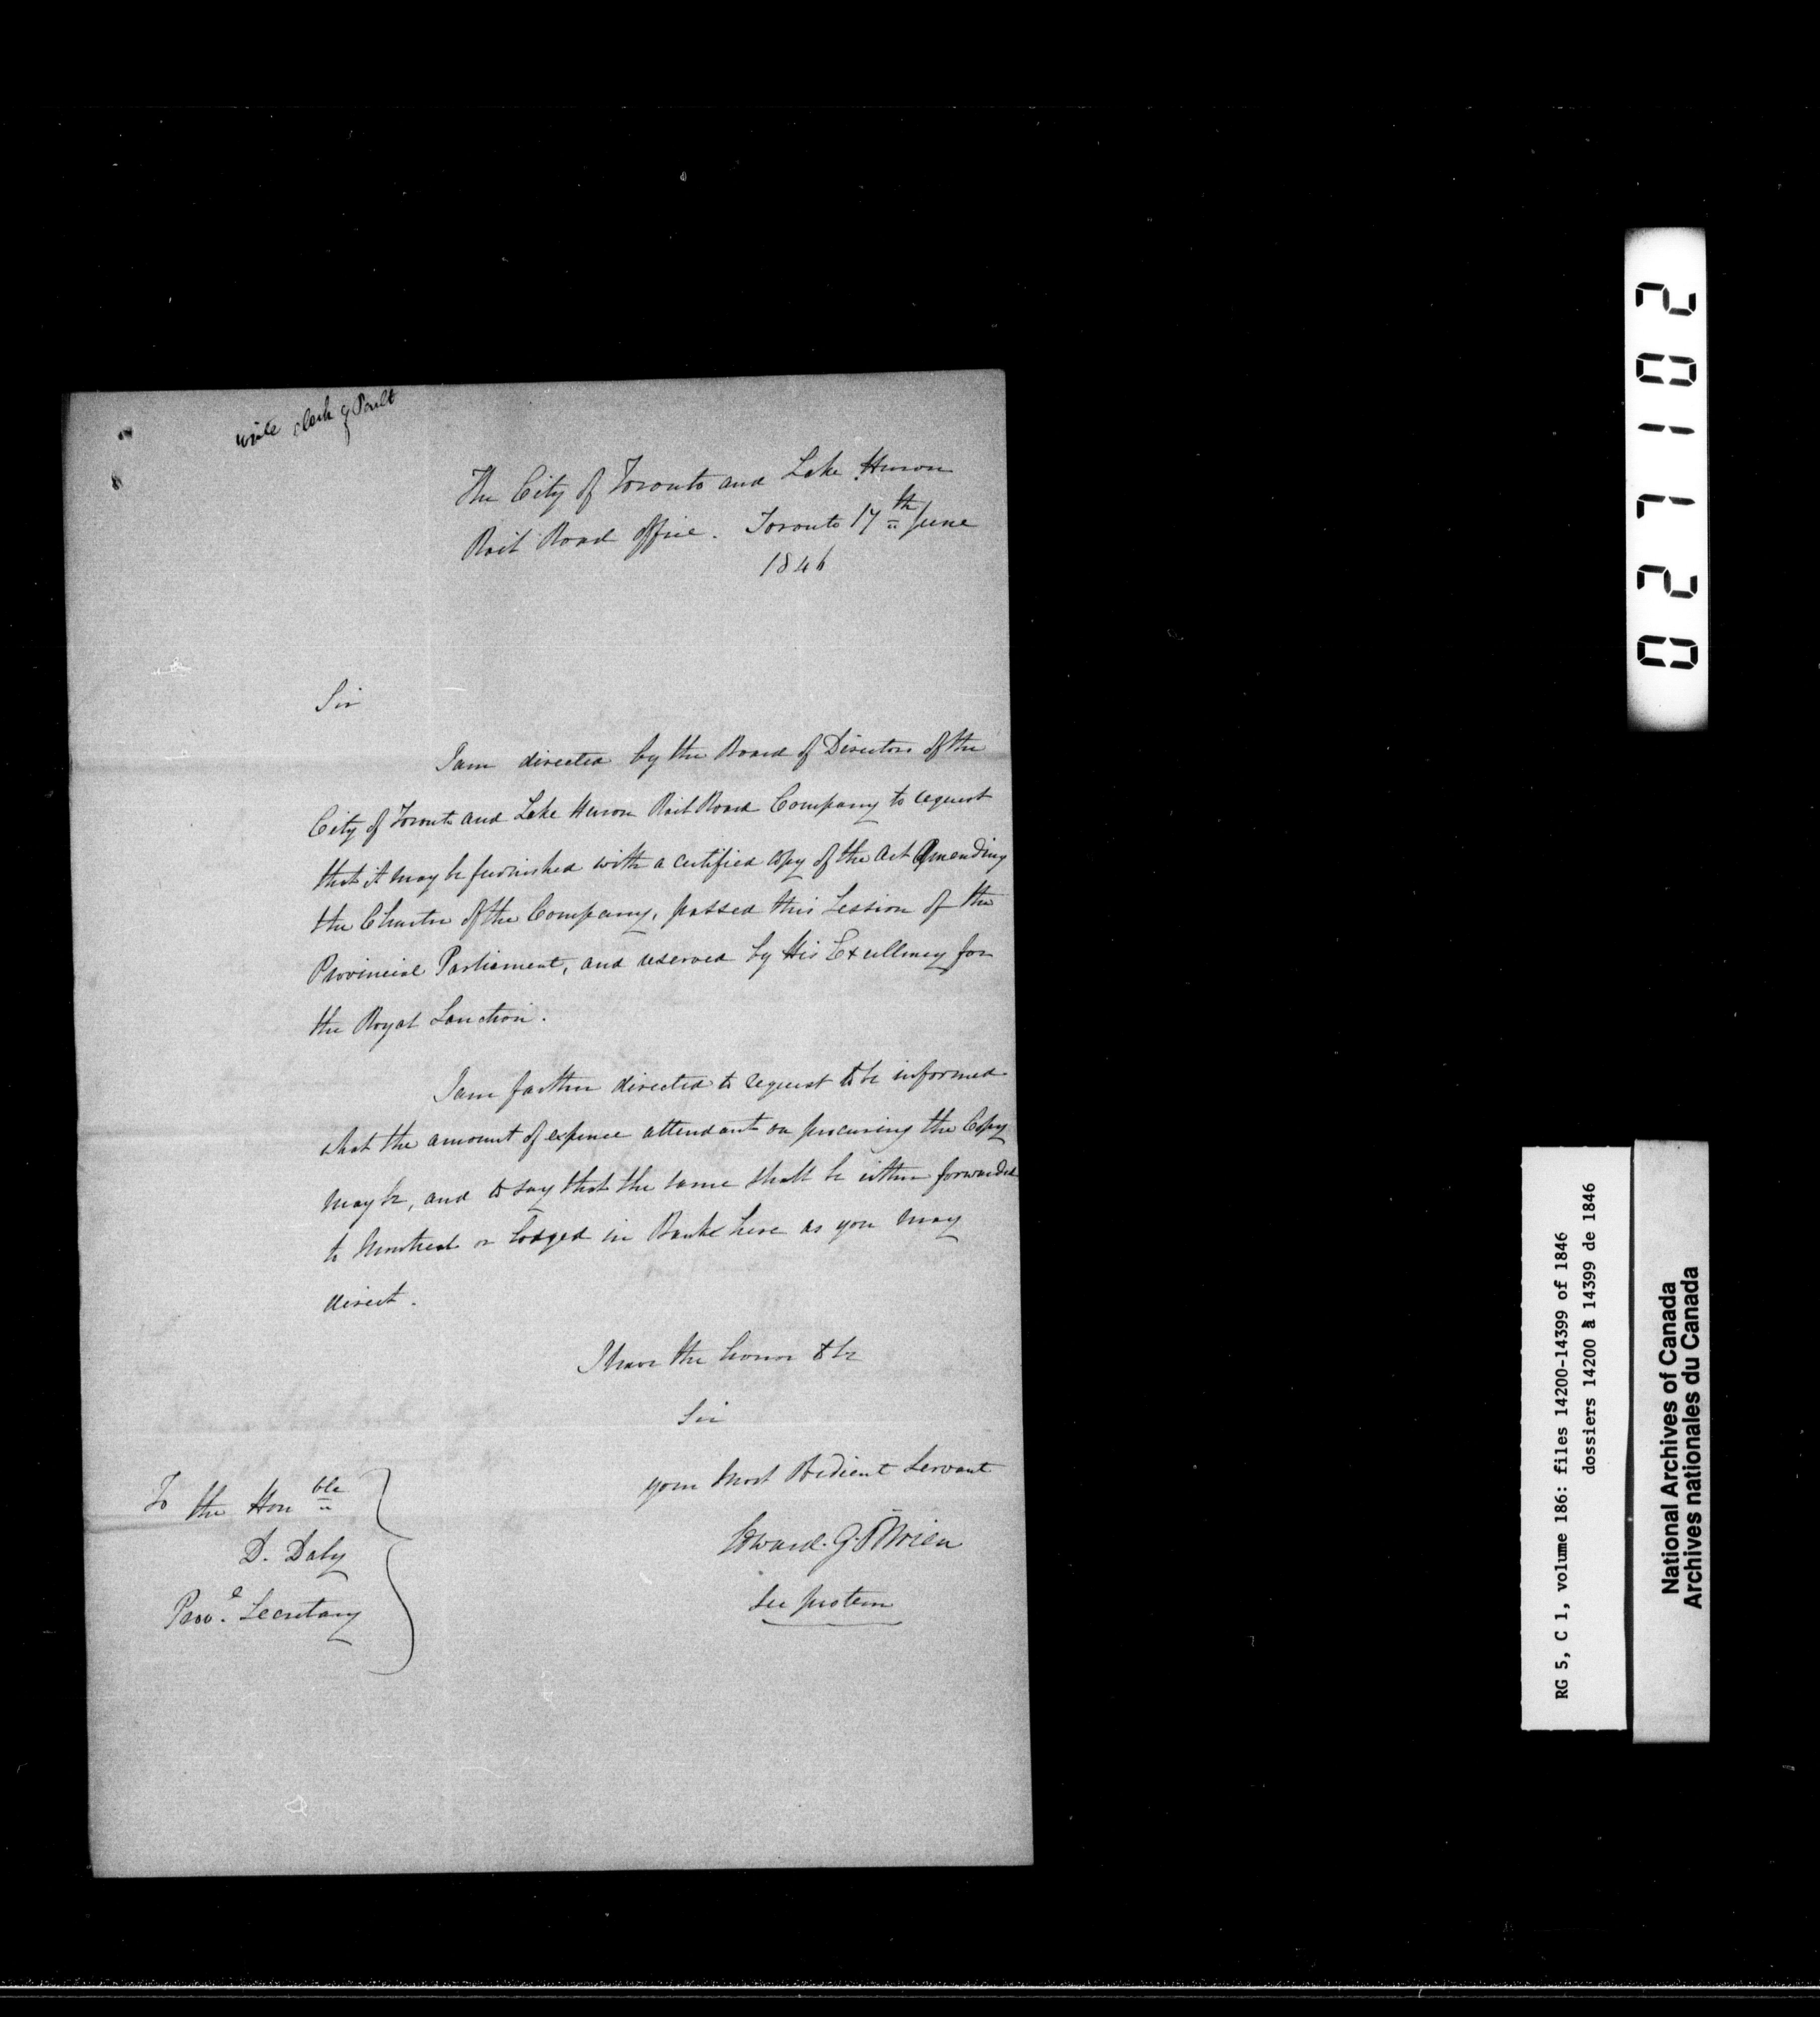 write clerk of Parlt
The City of Toronto and Lake Huron
Rail Road Office. Toronto 17th June
1846
Sir
I am directed by the Board of Directors of the
City of Toronto and Lake Huron Rail Road Company to request
that it may be furnished with a certified copy of the Act Amending
the Charter of the Company, passed this Session of the
Provincial Parliament, and reserved by His Excellency for
the Royal Sanction.
I am farther directed to request to be informed
what the amount of expence attendant on procuring the Copy
may be, and to say that the same shall be either forwarded
to Montreal or lodged in Bank here as you may
direct.
I have the honor to be
Sir
your Most Obedient Servant
Edward. G. O'Brien
Sec protem
To the Honble
D. Daly
Provl. Secretary
027102
RG 5, C 1, volume 186: files 14200-14399 of 1846
dossiers 14200 à 14399 de 1846
National Archives of Canada
Archives nationales du Canada